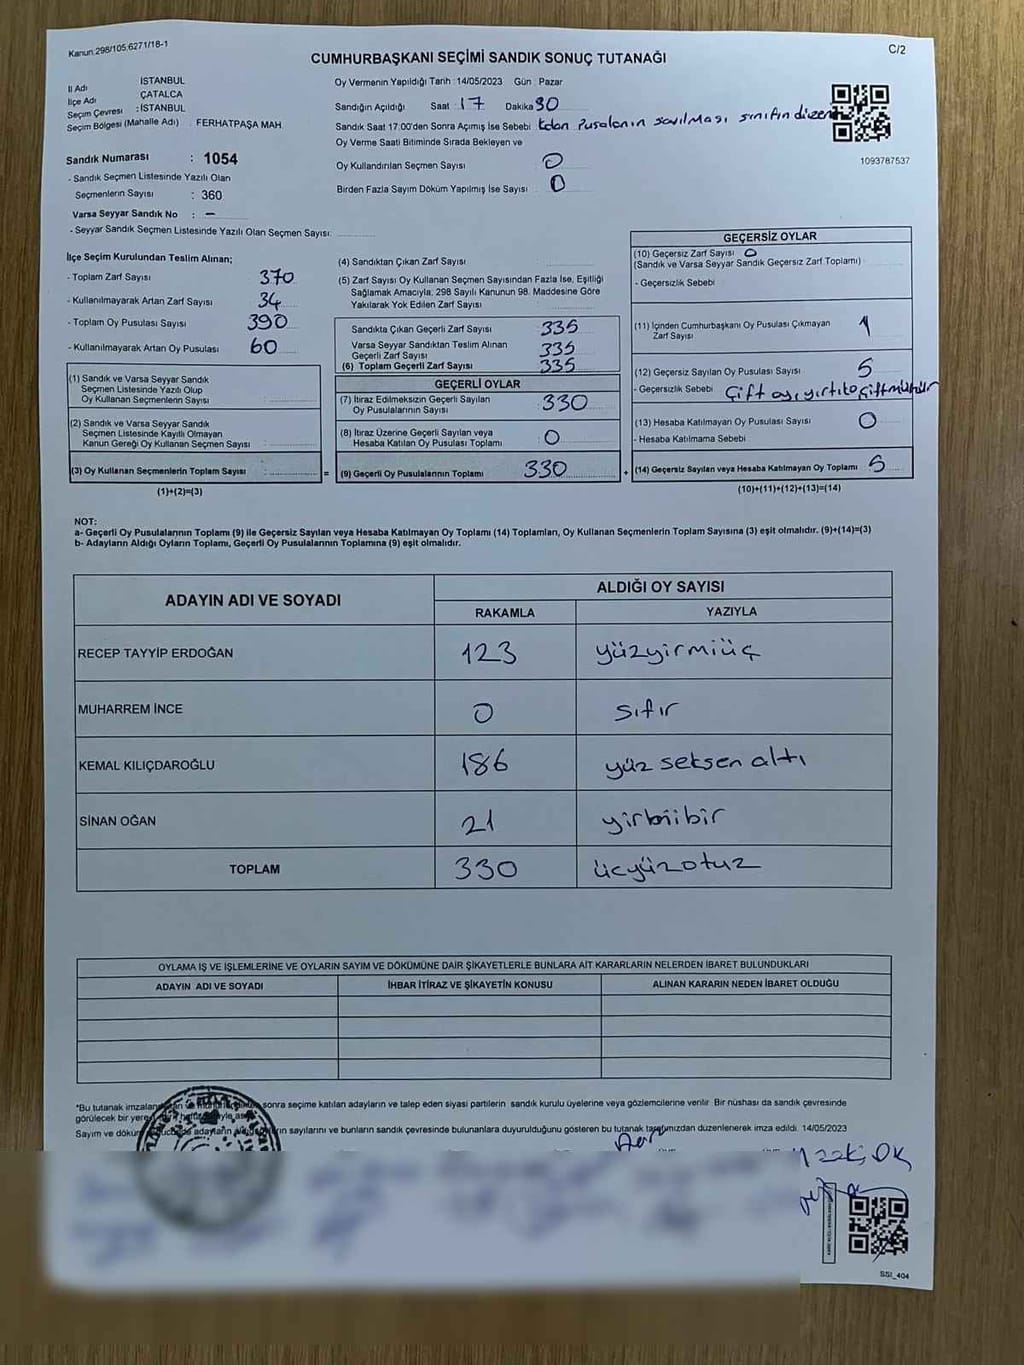 Kanun 298/105,6271/18-1
C/2
CUMHURBAŞKANI SEÇİMİ SANDIK SONUÇ TUTANAĞI
İl Adı İSTANBUL
İlçe Adı ÇATALCA
Seçim Çevresi : İSTANBUL
Seçim Bölgesi (Mahalle Adı) : FERHATPAŞA MAH.
Sandık Numarası : 1054
- Sandık Seçmen Listesinde Yazılı Olan
Seçmenlerin Sayısı : 360
Varsa Seyyar Sandık No : –
- Seyyar Sandık Seçmen Listesinde Yazılı Olan Seçmen Sayısı:
Oy Vermenin Yapıldığı Tarih :14/05/2023 Gün : Pazar
Sandığın Açıldığı Saat :17 Dakika 30
Sandık Saat 17:00'den Sonra Açımış İse Sebebi : sayılması sınıfın
Oy Verme Saati Bitiminde Sırada Bekleyen ve
Oy Kullandırılan Seçmen Sayısı 0
Birden Fazla Sayım Döküm Yapılmış İse Sayısı 0
1093787537
İlçe Seçim Kurulundan Teslim Alınan;
- Toplam Zarf Sayısı 370
- Kullanılmayarak Artan Zarf Sayısı 34
- Toplam Oy Pusulası Sayısı 390
- Kullanılmayarak Artan Oy Pusulası 60
(1) Sandık ve Varsa Seyyar Sandık
Seçmen Listesinde Yazılı Olup
Oy Kullanan Seçmenlerin Sayısı
(2) Sandık ve Varsa Seyyar Sandık
Seçmen Listesinde Kayıtlı Olmayan
Kanun Gereği Oy Kullanan Seçmen Sayısı
(3) Oy Kullanan Seçmenlerin Toplam Sayısı =
(1)+(2)=(3)
(4) Sandıktan Çıkan Zarf Sayısı
(5) Zarf Sayısı Oy Kullanan Seçmen Sayısından Fazla İse, Eşitliği
Sağlamak Amacıyla, 298 Sayılı Kanunun 98. Maddesine Göre
Yakılarak Yok Edilen Zarf Sayısı
Sandıkta Çıkan Geçerli Zarf Sayısı 335
Varsa Seyyar Sandıktan Teslim Alınan
Geçerli Zarf Sayısı 335
(6) Toplam Geçerli Zarf Sayısı 335
GEÇERLİ OYLAR
(7) İtiraz Edilmeksizin Geçerli Sayılan
Oy Pusulalarının Sayısı 330
(8) İtiraz Üzerine Geçerli Sayılan veya
Hesaba Katılan Oy Pusulası Toplamı 0
(9) Geçerli Oy Pusulalarının Toplamı 330 +
GEÇERSİZ OYLAR
(10) Geçersiz Zarf Sayısı 0
(Sandık ve Varsa Seyyar Sandık Geçersiz Zarf Toplamı)
- Geçersizlik Sebebi
(11) İçinden Cumhurbaşkanı Oy Pusulası Çıkmayan
Zarf Sayısı 1
(12) Geçersiz Sayılan Oy Pusulası Sayısı 5
- Geçersizlik Sebebi Çift oy,
(13) Hesaba Katılmayan Oy Pusulası Sayısı 0
- Hesaba Katılmama Sebebi
(14) Geçersiz Sayılan veya Hesaba Katılmayan Oy Toplamı 5
(10)+(11)+(12)+(13)=(14)
NOT:
a- Geçerli Oy Pusulalarının Toplamı (9) ile Geçersiz Sayılan veya Hesaba Katılmayan Oy Toplamı (14) Toplamları, Oy Kullanan Seçmenlerin Toplam Sayısına (3) eşit olmalıdır. (9)+(14)=(3)
b- Adayların Aldığı Oyların Toplamı, Geçerli Oy Pusulalarının Toplamına (9) eşit olmalıdır.
ADAYIN ADI VE SOYADI ALDIĞI OY SAYISI
RAKAMLA YAZIYLA
RECEP TAYYİP ERDOĞAN 123 yüzyirmiüç
MUHARREM İNCE 0 sıfır
KEMAL KILIÇDAROĞLU 186 yüz seksen altı
SİNAN OĞAN 21
TOPLAM 330 üçyüzotuz
OYLAMA İŞ VE İŞLEMLERİNE VE OYLARIN SAYIM VE DÖKÜMÜNE DAİR ŞİKAYETLERLE BUNLARA AİT KARARLARIN NELERDEN İBARET BULUNDUKLARI
ADAYIN ADI VE SOYADI İHBAR İTİRAZ VE ŞİKAYETİN KONUSU ALINAN KARARIN NEDEN İBARET OLDUĞU
*Bu tutanak sonra seçime katılan adayların ve talep eden siyasi partilerin sandık kurulu üyelerine veya gözlemcilerine verilir. Bir nüshası da sandık çevresinde
görülecek bir yere
Sayım ve döküm adayların sayılarını ve bunların sandık çevresinde bulunanlara duyurulduğunu gösteren bu tutanak tarafımızdan düzenlenerek imza edildi. 14/05/2023
SSI_404